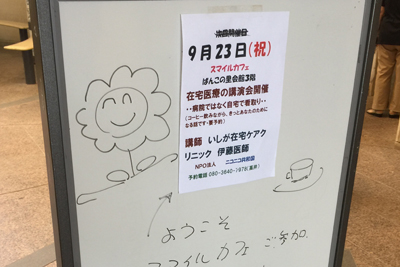 次回開催日
9月23日(祝)
スマイルカフェ
ばんこの里会館3階
在宅医療の講演会開催
・・病院ではなく自宅で看取り・・
(コーヒー飲みながら、きっとあなたのために
なる話です・要予約)
講師 いしが在宅ケアク
リニック 伊藤医師
NPO法人 ニコニコ共和国
ようこそ
スマイルカフェ ご参加